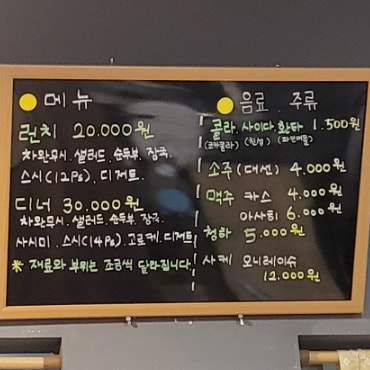 메뉴
런치 20.000원
차완무시. 샐러드. 순두부. 장국.
스시(12Ps). 디저트.
디너 30.000원
차완무시. 샐러드. 순두부. 장국.
사시미. 스시(14Ps). 고로케. 디저트
※ 재료와 부위는 조금씩 달라집니다.
음료. 주류
콜라. 사이다. 환타 1.500원
(코카콜라) (킨사이다) (파인애플)
소주 (대선) 4.000원
맥주 카스 4.000원
아사히 6.000원
청하 5.000원
사케 오니레이슈
12.000원